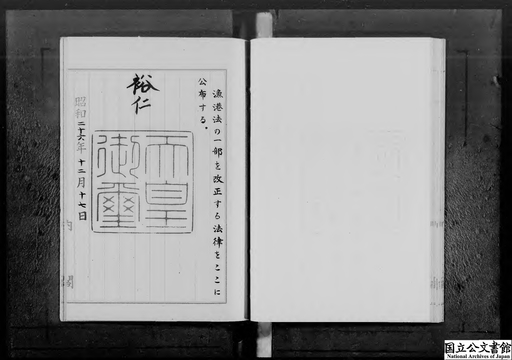 漁港法の一部を改正する法律をここに
公布する。
裕仁
天皇
御璽
昭和二十六年十二月十七日
内閣
国立公文書館
National Archives of Japan